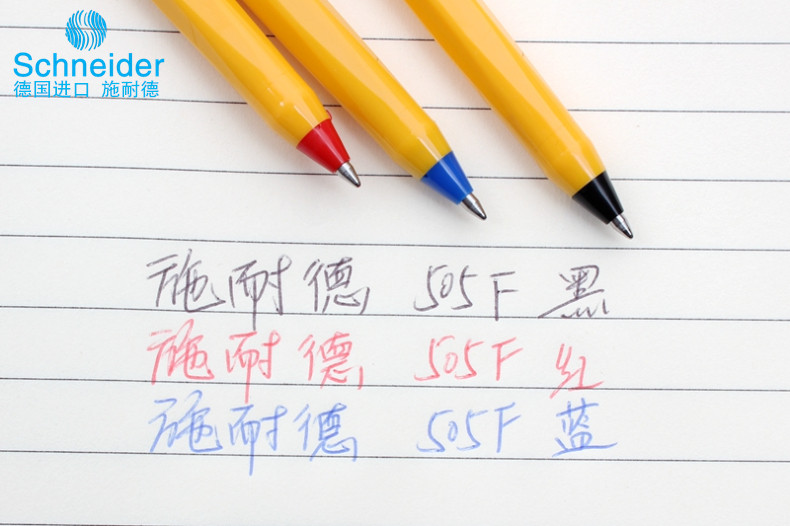 Schneider
德国进口 施耐德
施耐德 505F 黑
施耐德 505F 红
施耐德 505F 蓝